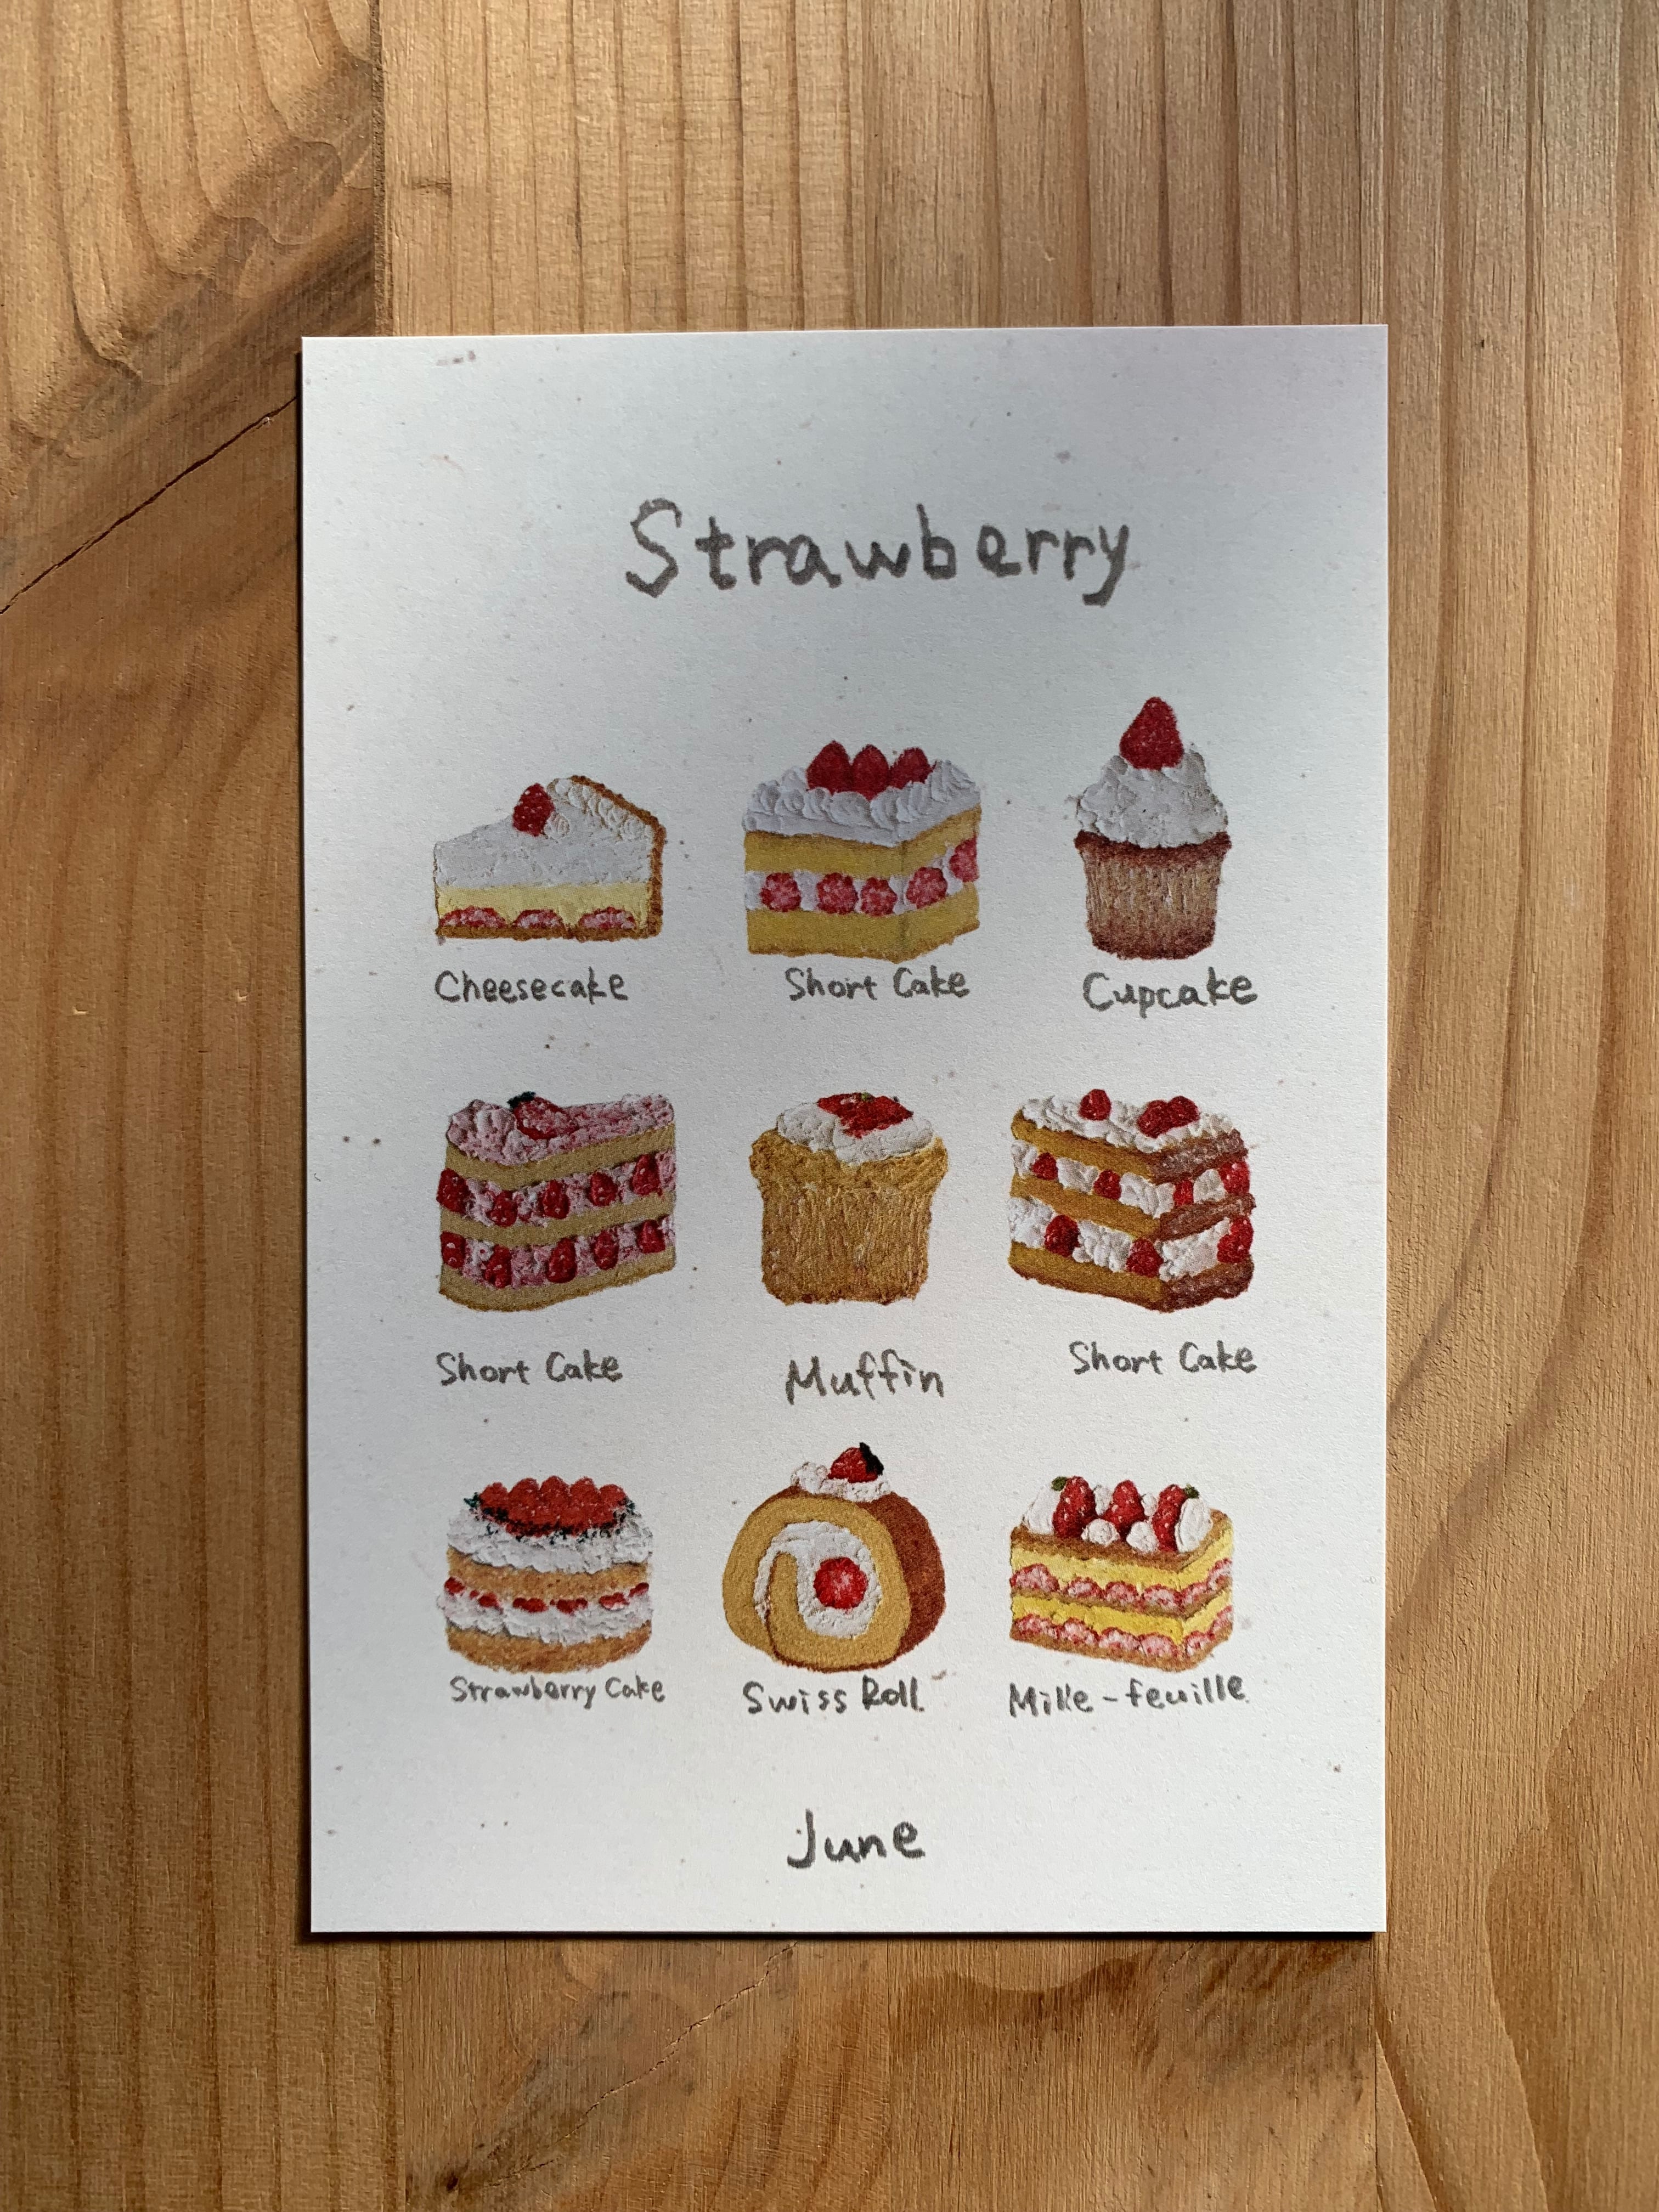 Strawberry
Cheesecake
Short Cake
Cupcake
Short Cake
Muffin
Short Cake
Strawberry Cake
Swiss Roll
Mille-feuille
June